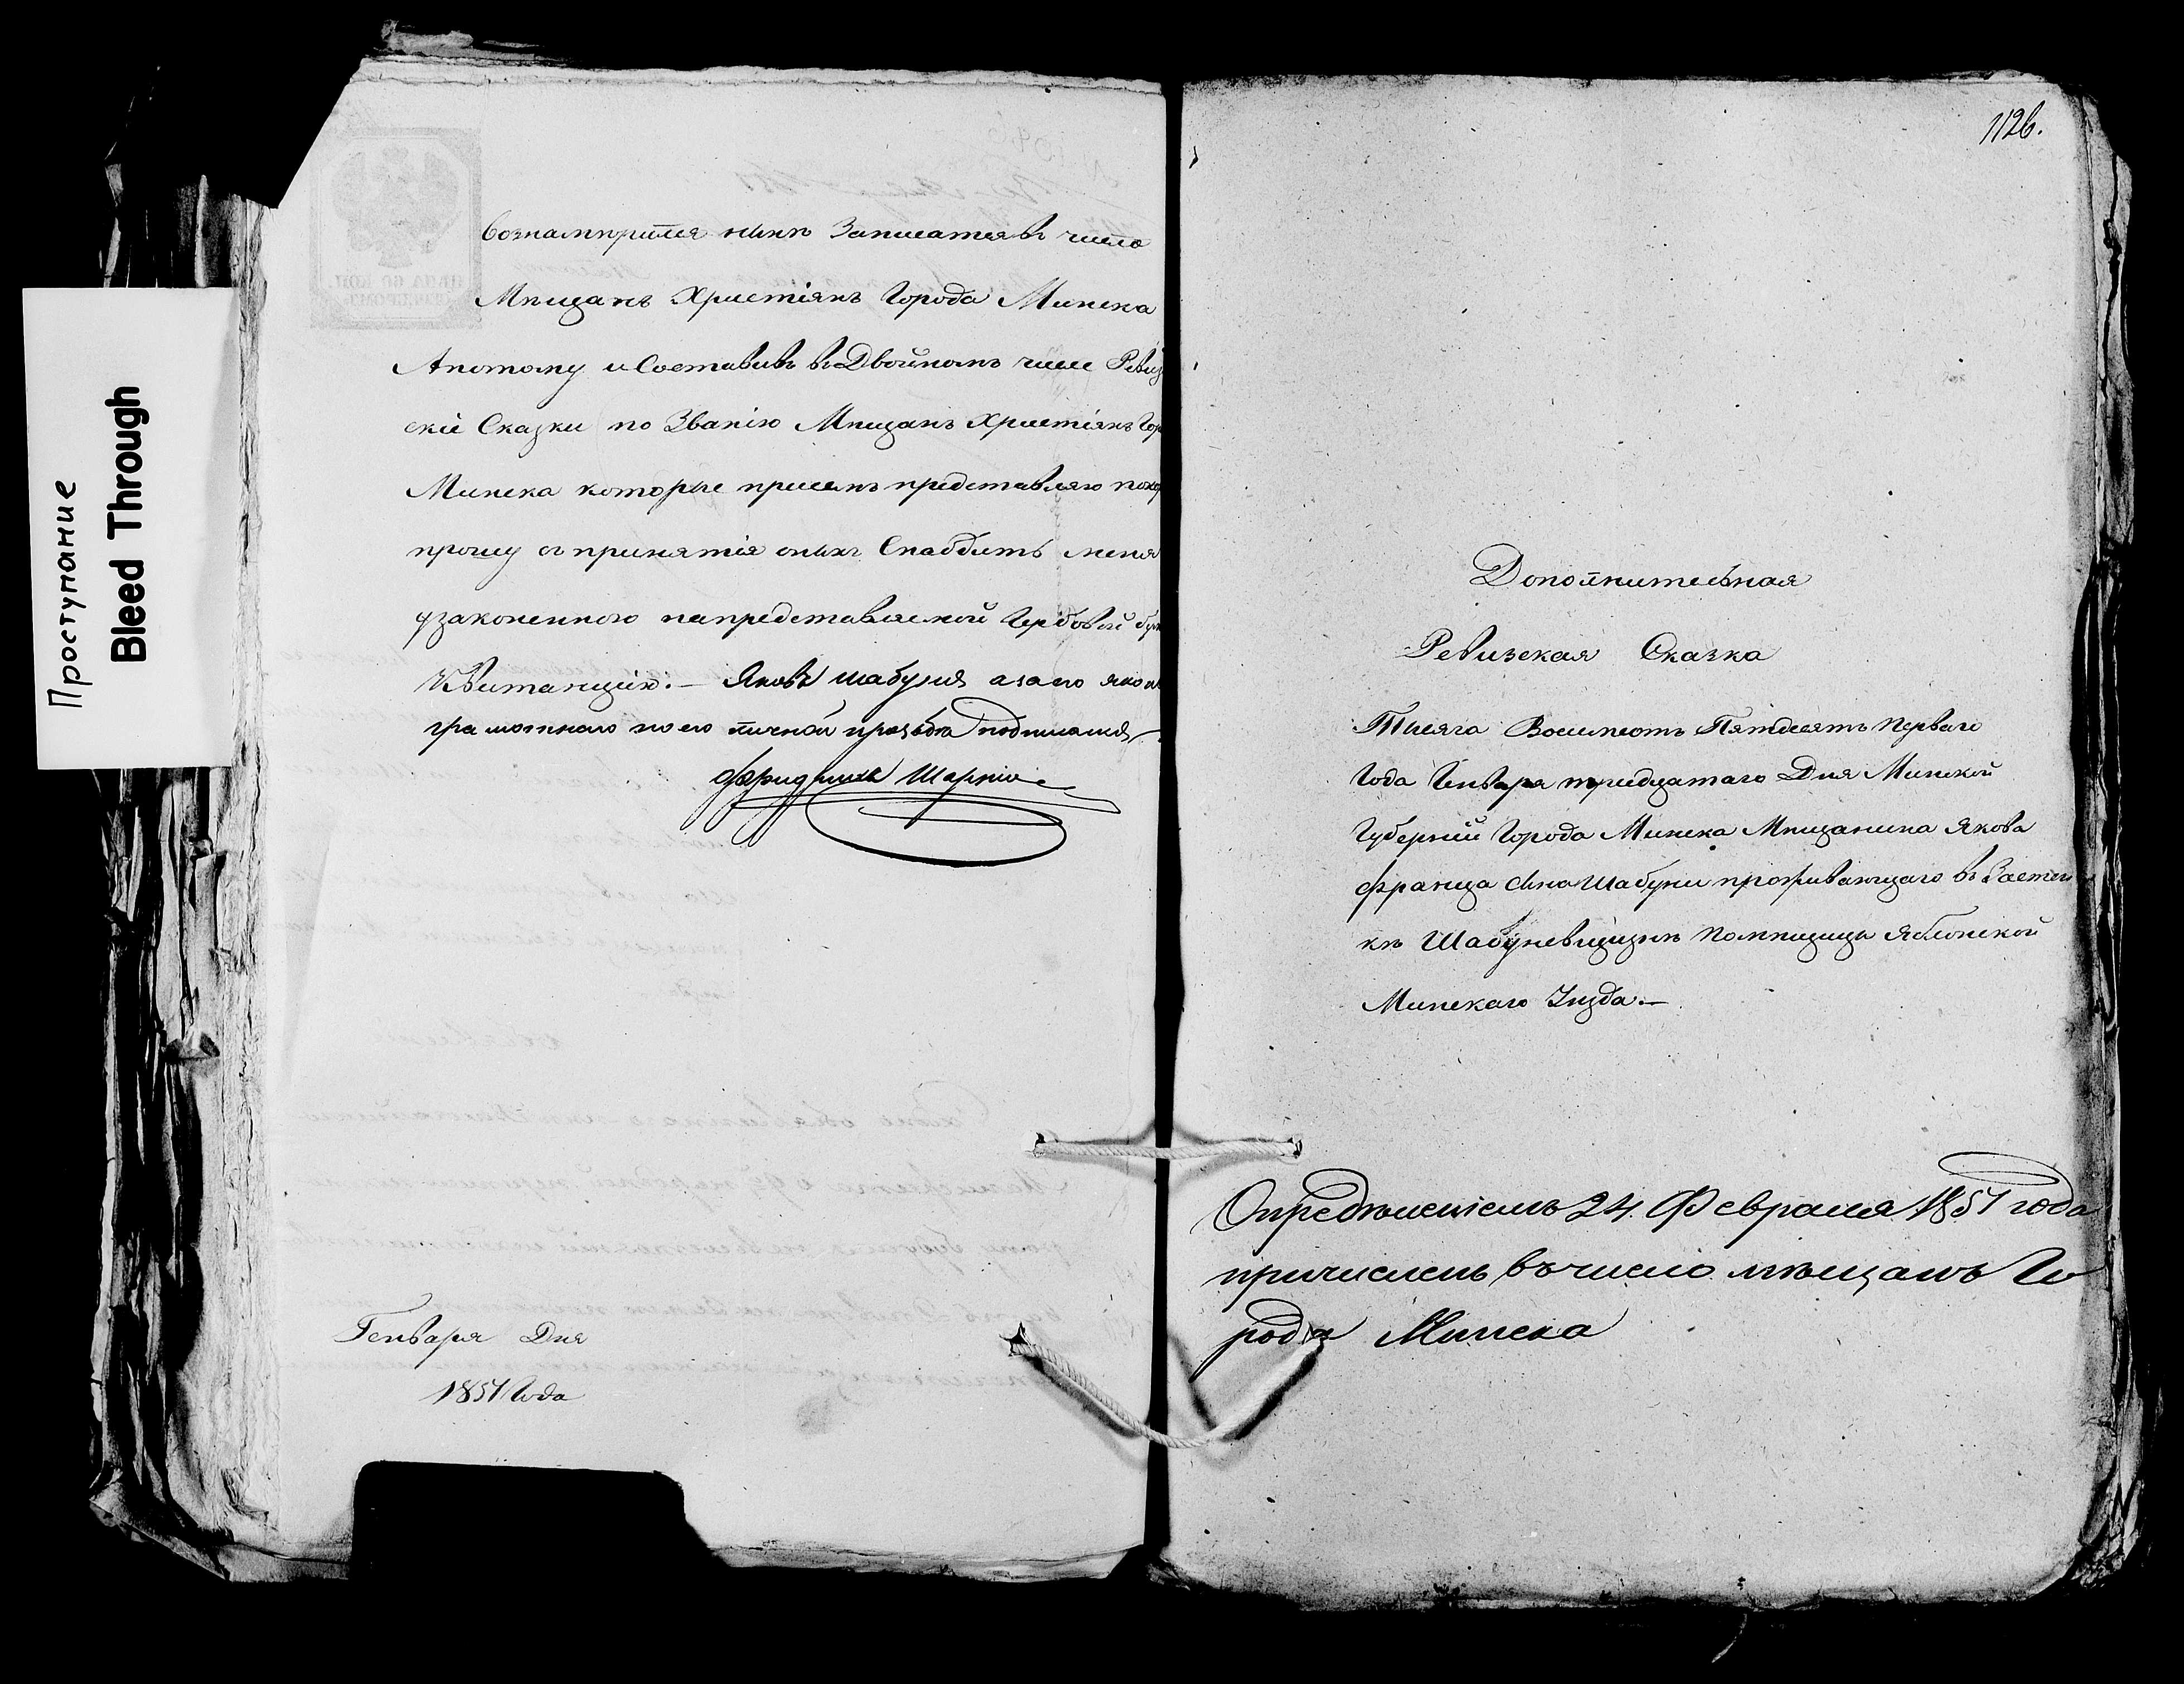 Проступание
Bleed Through
вознамѣрился нынѣ Записатся въ число
Мѣщанъ Христіянъ Города Минска
Апотому и Составивъ въ Двойномъ числѣ Ревиз
скіе Сказки по Званію Мѣщанъ Христіянъ Гор
Минска которые присемъ представляю покор
прошу о принятія оныхъ Снабдить меня
узаконенного напредставляемой Гербовой бум
Квитанцію. — Яковъ Шабуня азаго яко не
грамотнаго по его личной прозьбѣ подписался
Фридрихъ
Генваря Дня
1851 Года
1126.
Дополнительная
Ревизская Сказка
Тысяча Восемсотъ Пятдесятъ Перваго
Года Генваря тридцатаго Дня Минской
Губерніи Города Минска Мѣщанина Якова
Франца Сына Шабуни проживающаго въ Застен
кѣ Шабуневщизнѣ Помѣщицы Яблонской
Минскаго Уѣзда. —
Опредѣленіемъ 24 Февраля 1851 года
причисленъ въ число мѣщанъ Го
рода Минска